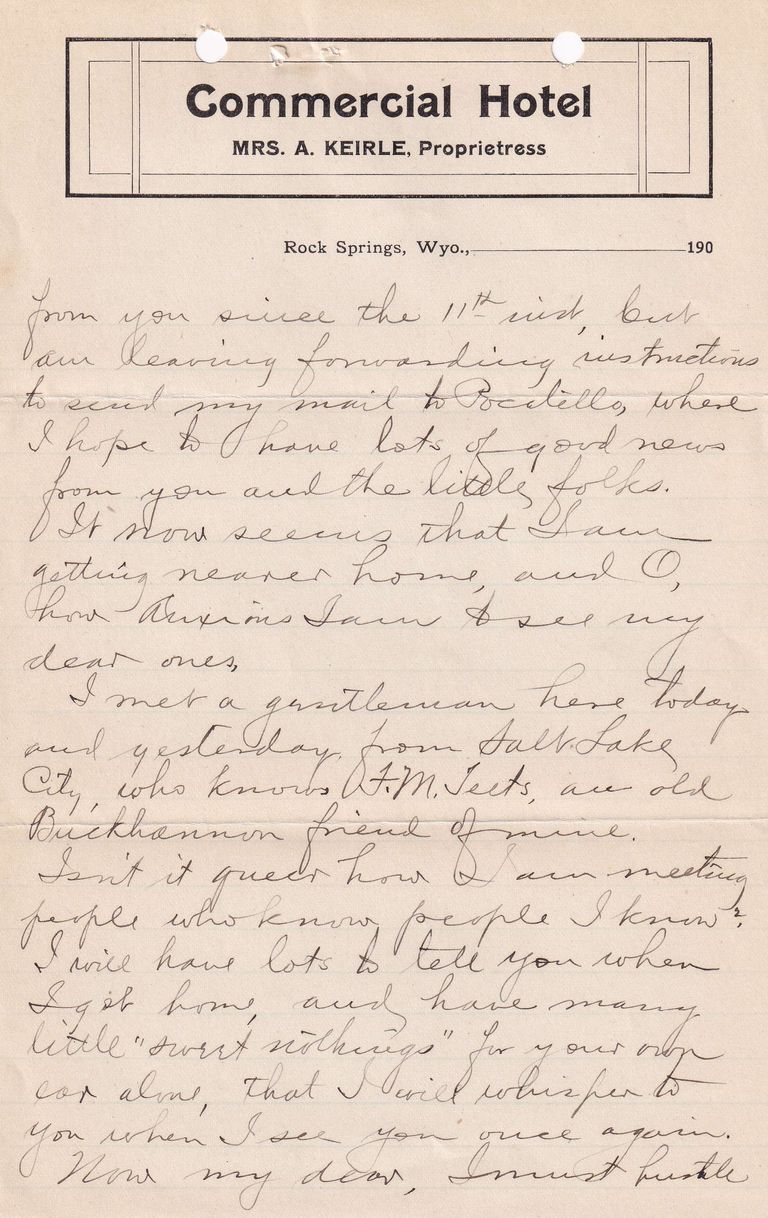 Commercial Hotel
MRS. A. KEIRLE, Proprietress
Rock Springs, Wyo., 190
from you since the 11th inst, but
am leaving forwarding instructions
to send my mail to Pocatello, where
I hope to have lots of good news
from you and the little folks.
It now seems that I am
getting nearer home, and O,
how anxious I am to see my
dear ones,
I met a gentleman here today
and yesterday, from Salt Lake
City, who knows F. M. Teets, an old
Buckhannon friend of mine.
Isn't it queer how I am meeting
people who know people I know?
I will have lots to tell you when
I get home, and have many
little "sweet nothings" for your own
ear alone, that I will whisper to
you when I see you once again.
Now my dear, I must hustle